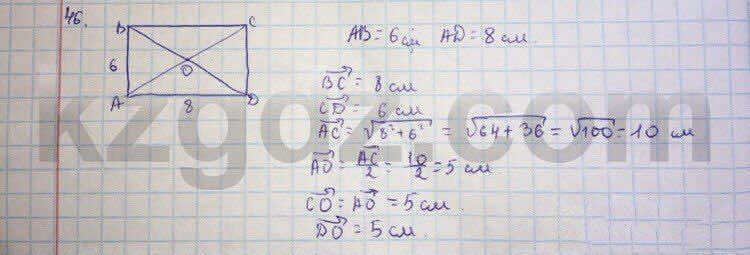 46.
B C
6
O
A 8 D
AB = 6 см AD = 8 см.
$\overrightarrow{BC}$ = 8 см
$\overrightarrow{CD}$ = 6 см
$\overrightarrow{AC}$ = $\sqrt{8^2+6^2}$ = $\sqrt{64+36}$ = $\sqrt{100}$ = 10 см
$\overrightarrow{AO}$ = $\frac{\overrightarrow{AC}}{2}$ = $\frac{10}{2}$ = 5 см
$\overrightarrow{CO}$ = $\overrightarrow{AO}$ = 5 см.
$\overrightarrow{DO}$ = 5 см.
kzgdz.com